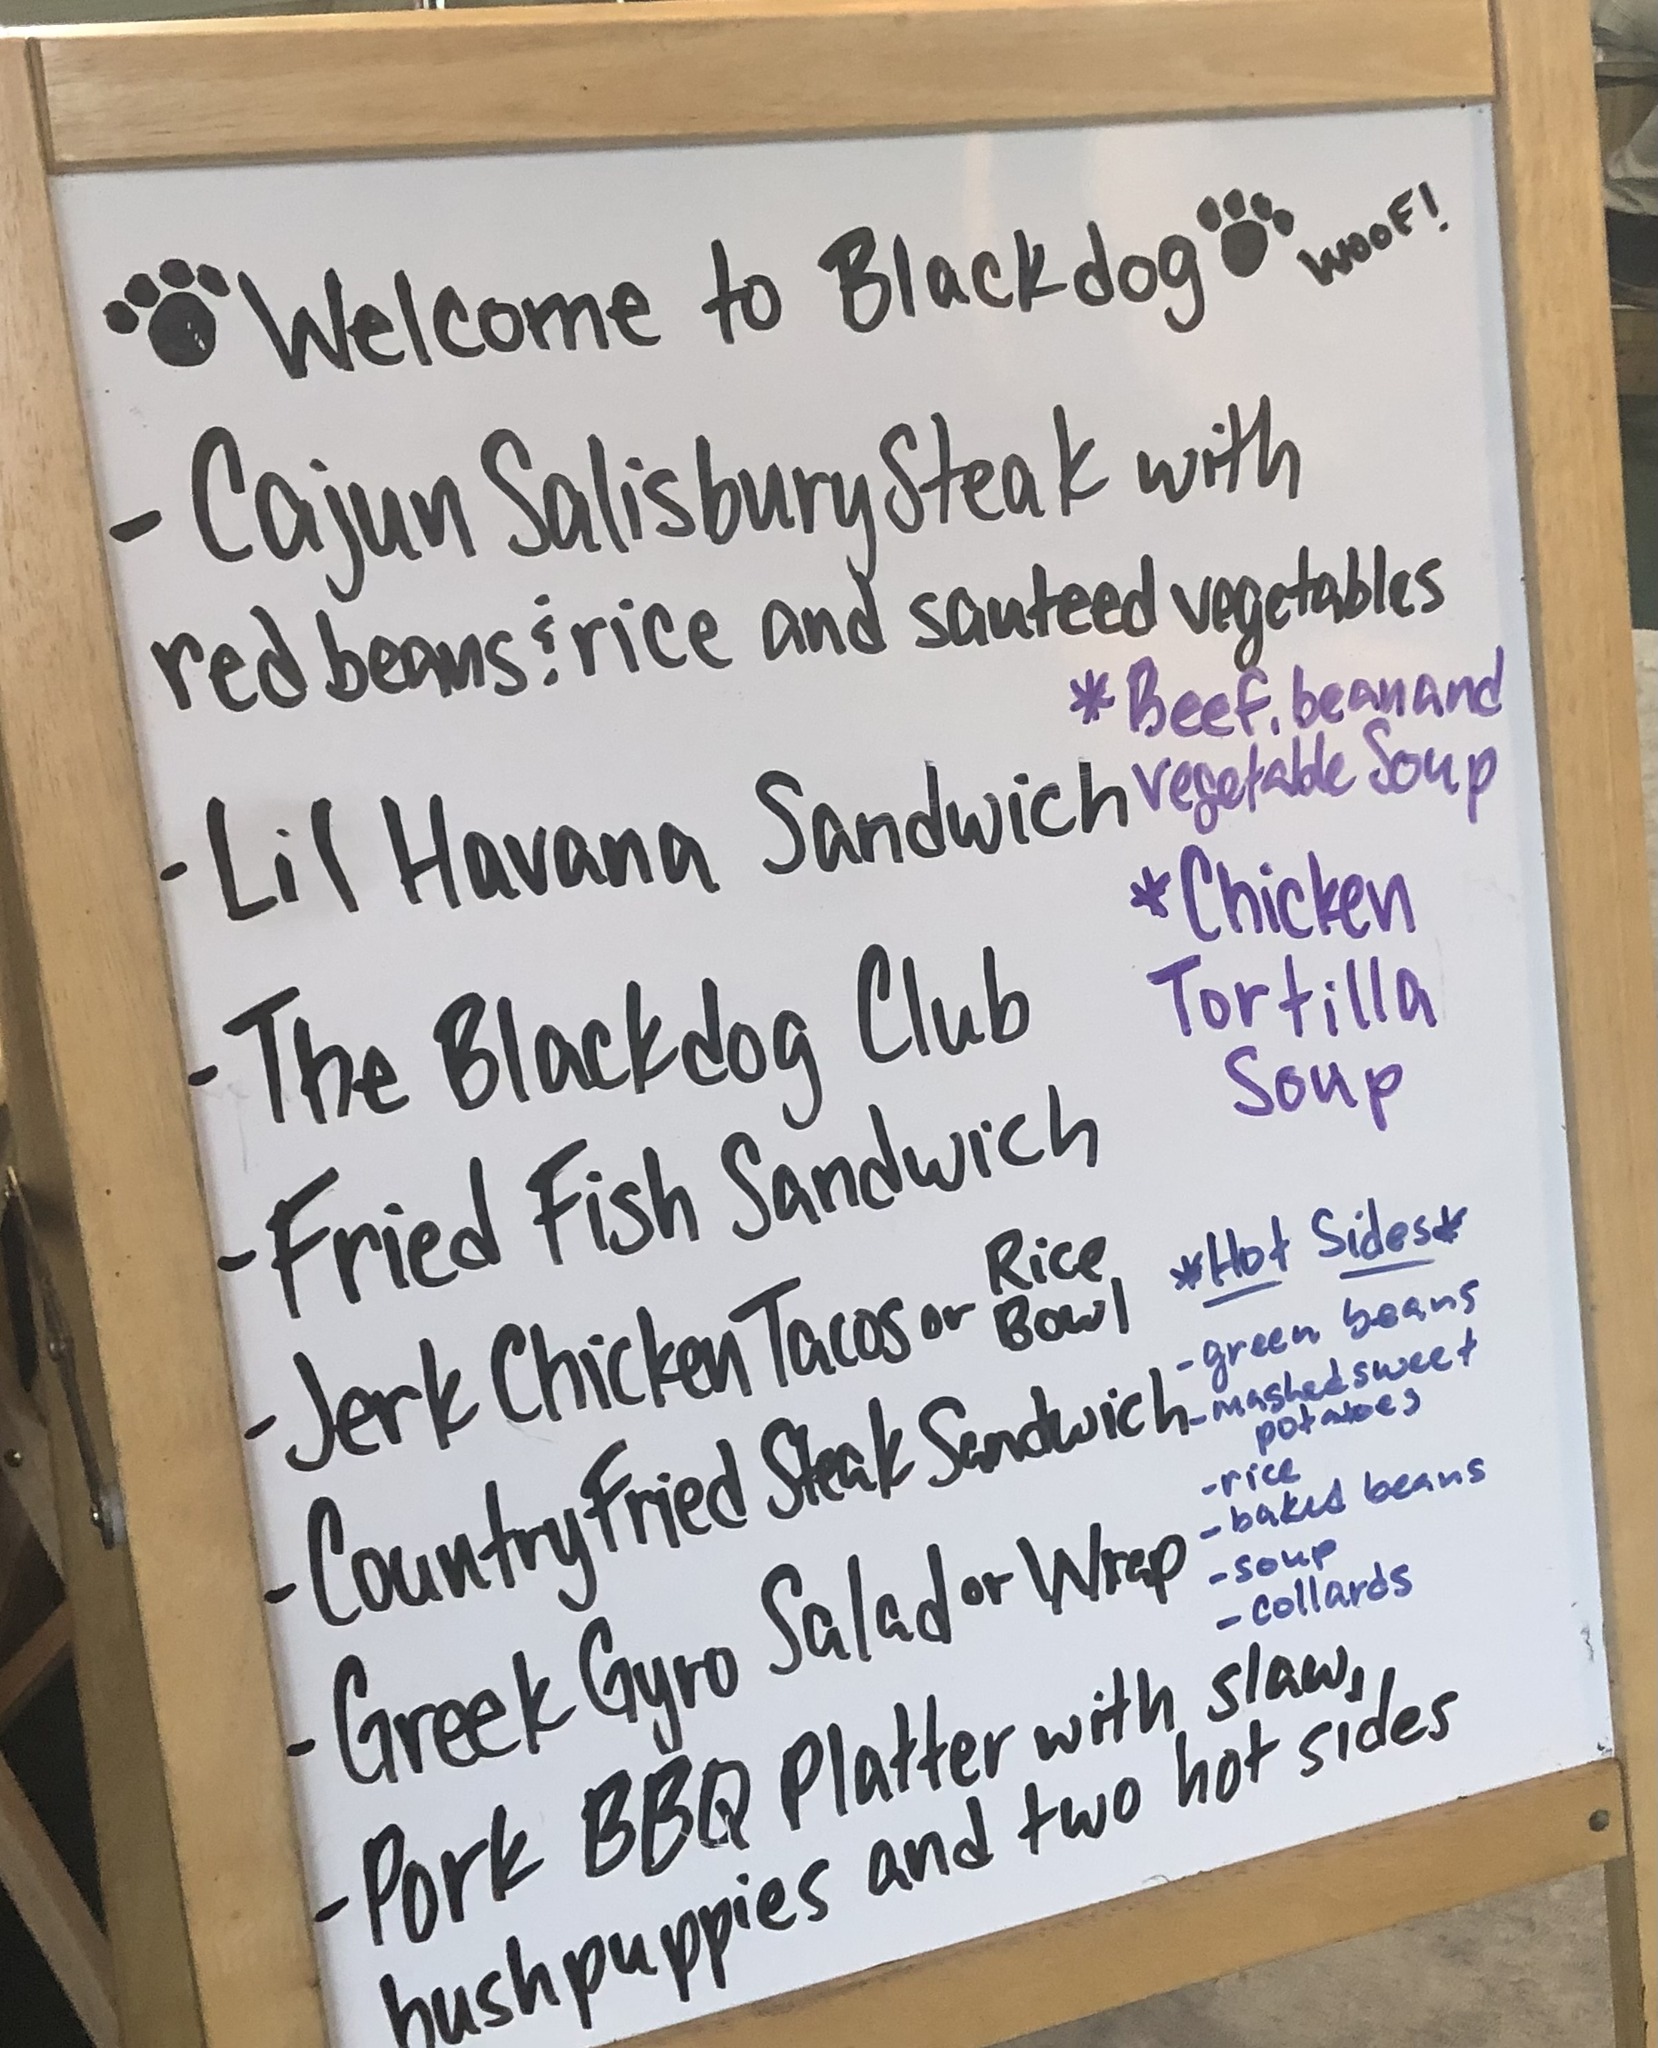 Welcome to Blackdog WOOF!
- Cajun Salisbury Steak with
red beans & rice and sauteed vegetables
- Lil Havana Sandwich
- The Blackdog Club
- Fried Fish Sandwich
- Jerk Chicken Tacos or Rice Bowl
- Country Fried Steak Sandwich
- Greek Gyro Salad or Wrap
- Pork BBQ Platter with slaw,
hushpuppies and two hot sides
*Beef, bean and
vegetable Soup
*Chicken
Tortilla
Soup
*Hot Sides*
- green beans
- mashed sweet
potatoes
- rice
- baked beans
- soup
- collards